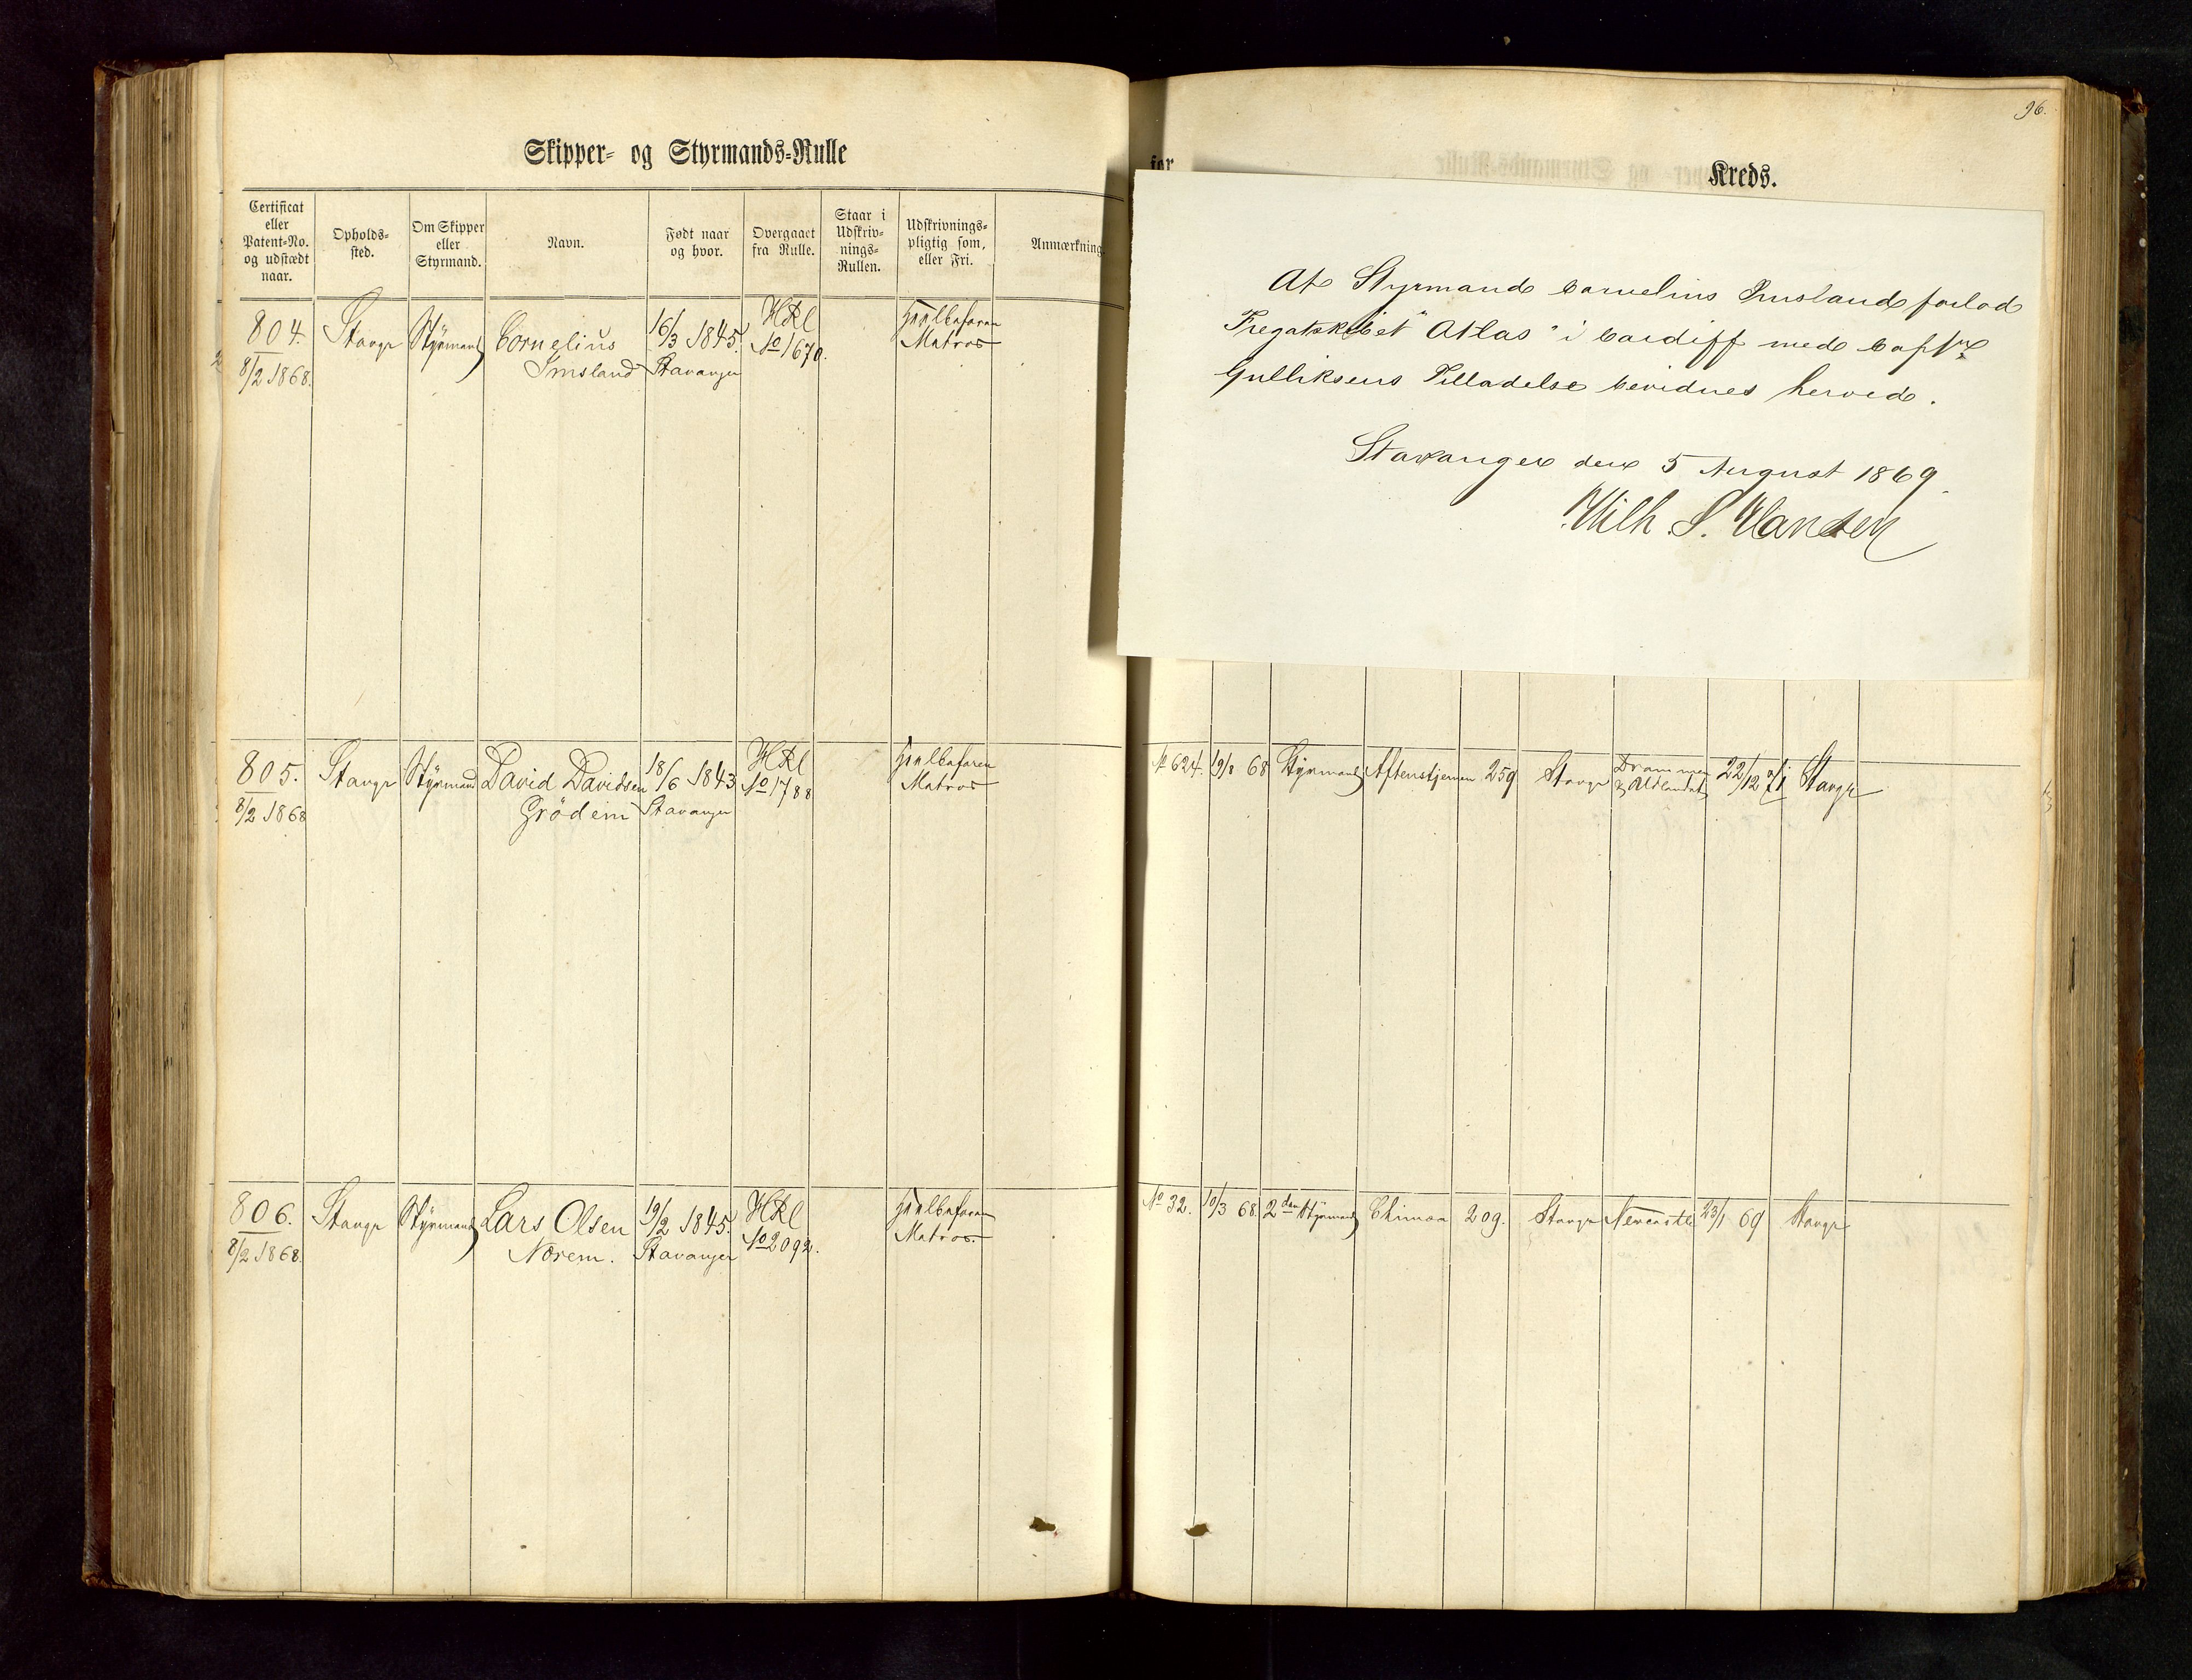 Skipper- og Styrmands-Rulle
Certificat eller Patent-No. og udstædt naar.
Opholds-sted.
Om Skipper eller Styrmand.
Navn.
Født naar og hvor.
Overgaaet fra Rulle.
Staar i Udskriv-nings-Rullen.
Udskrivnings-pligtig som, eller Fri.
Anmærkning
804. Stavgr Styrmand Cornelius 16/3 1845. HRl
8/2 1868. Imsland Stavanger No 1670. Matros
805. Stavgr Styrmand David Davidsen 18/6 1843 HRl
8/2 1868 Grödem Stavanger No 1788 Matros
806. Stavgr Styrmand Lars Olsen 19/2 1845. HRl
8/2 1868. Norem. Stavanger No 2092. Matros.
96.
for
Kreds.
At Styrmand Cornelius Imsland forlod
Fregatskibet "Atlas" i Cardiff med Capt
Gulliksens Tilladelse bevidnes herved.
Stavanger den 5 August 1869.
Wilh. S. Hansen
No 624. 19/8 68 Styrmand Aftenstjernen 259 Stavgr Drammen 22/12 Stavgr
No 32. 10/3 68. 2den Styrmand 209. Stavgr Newcastle 23/1 69 Stavgr